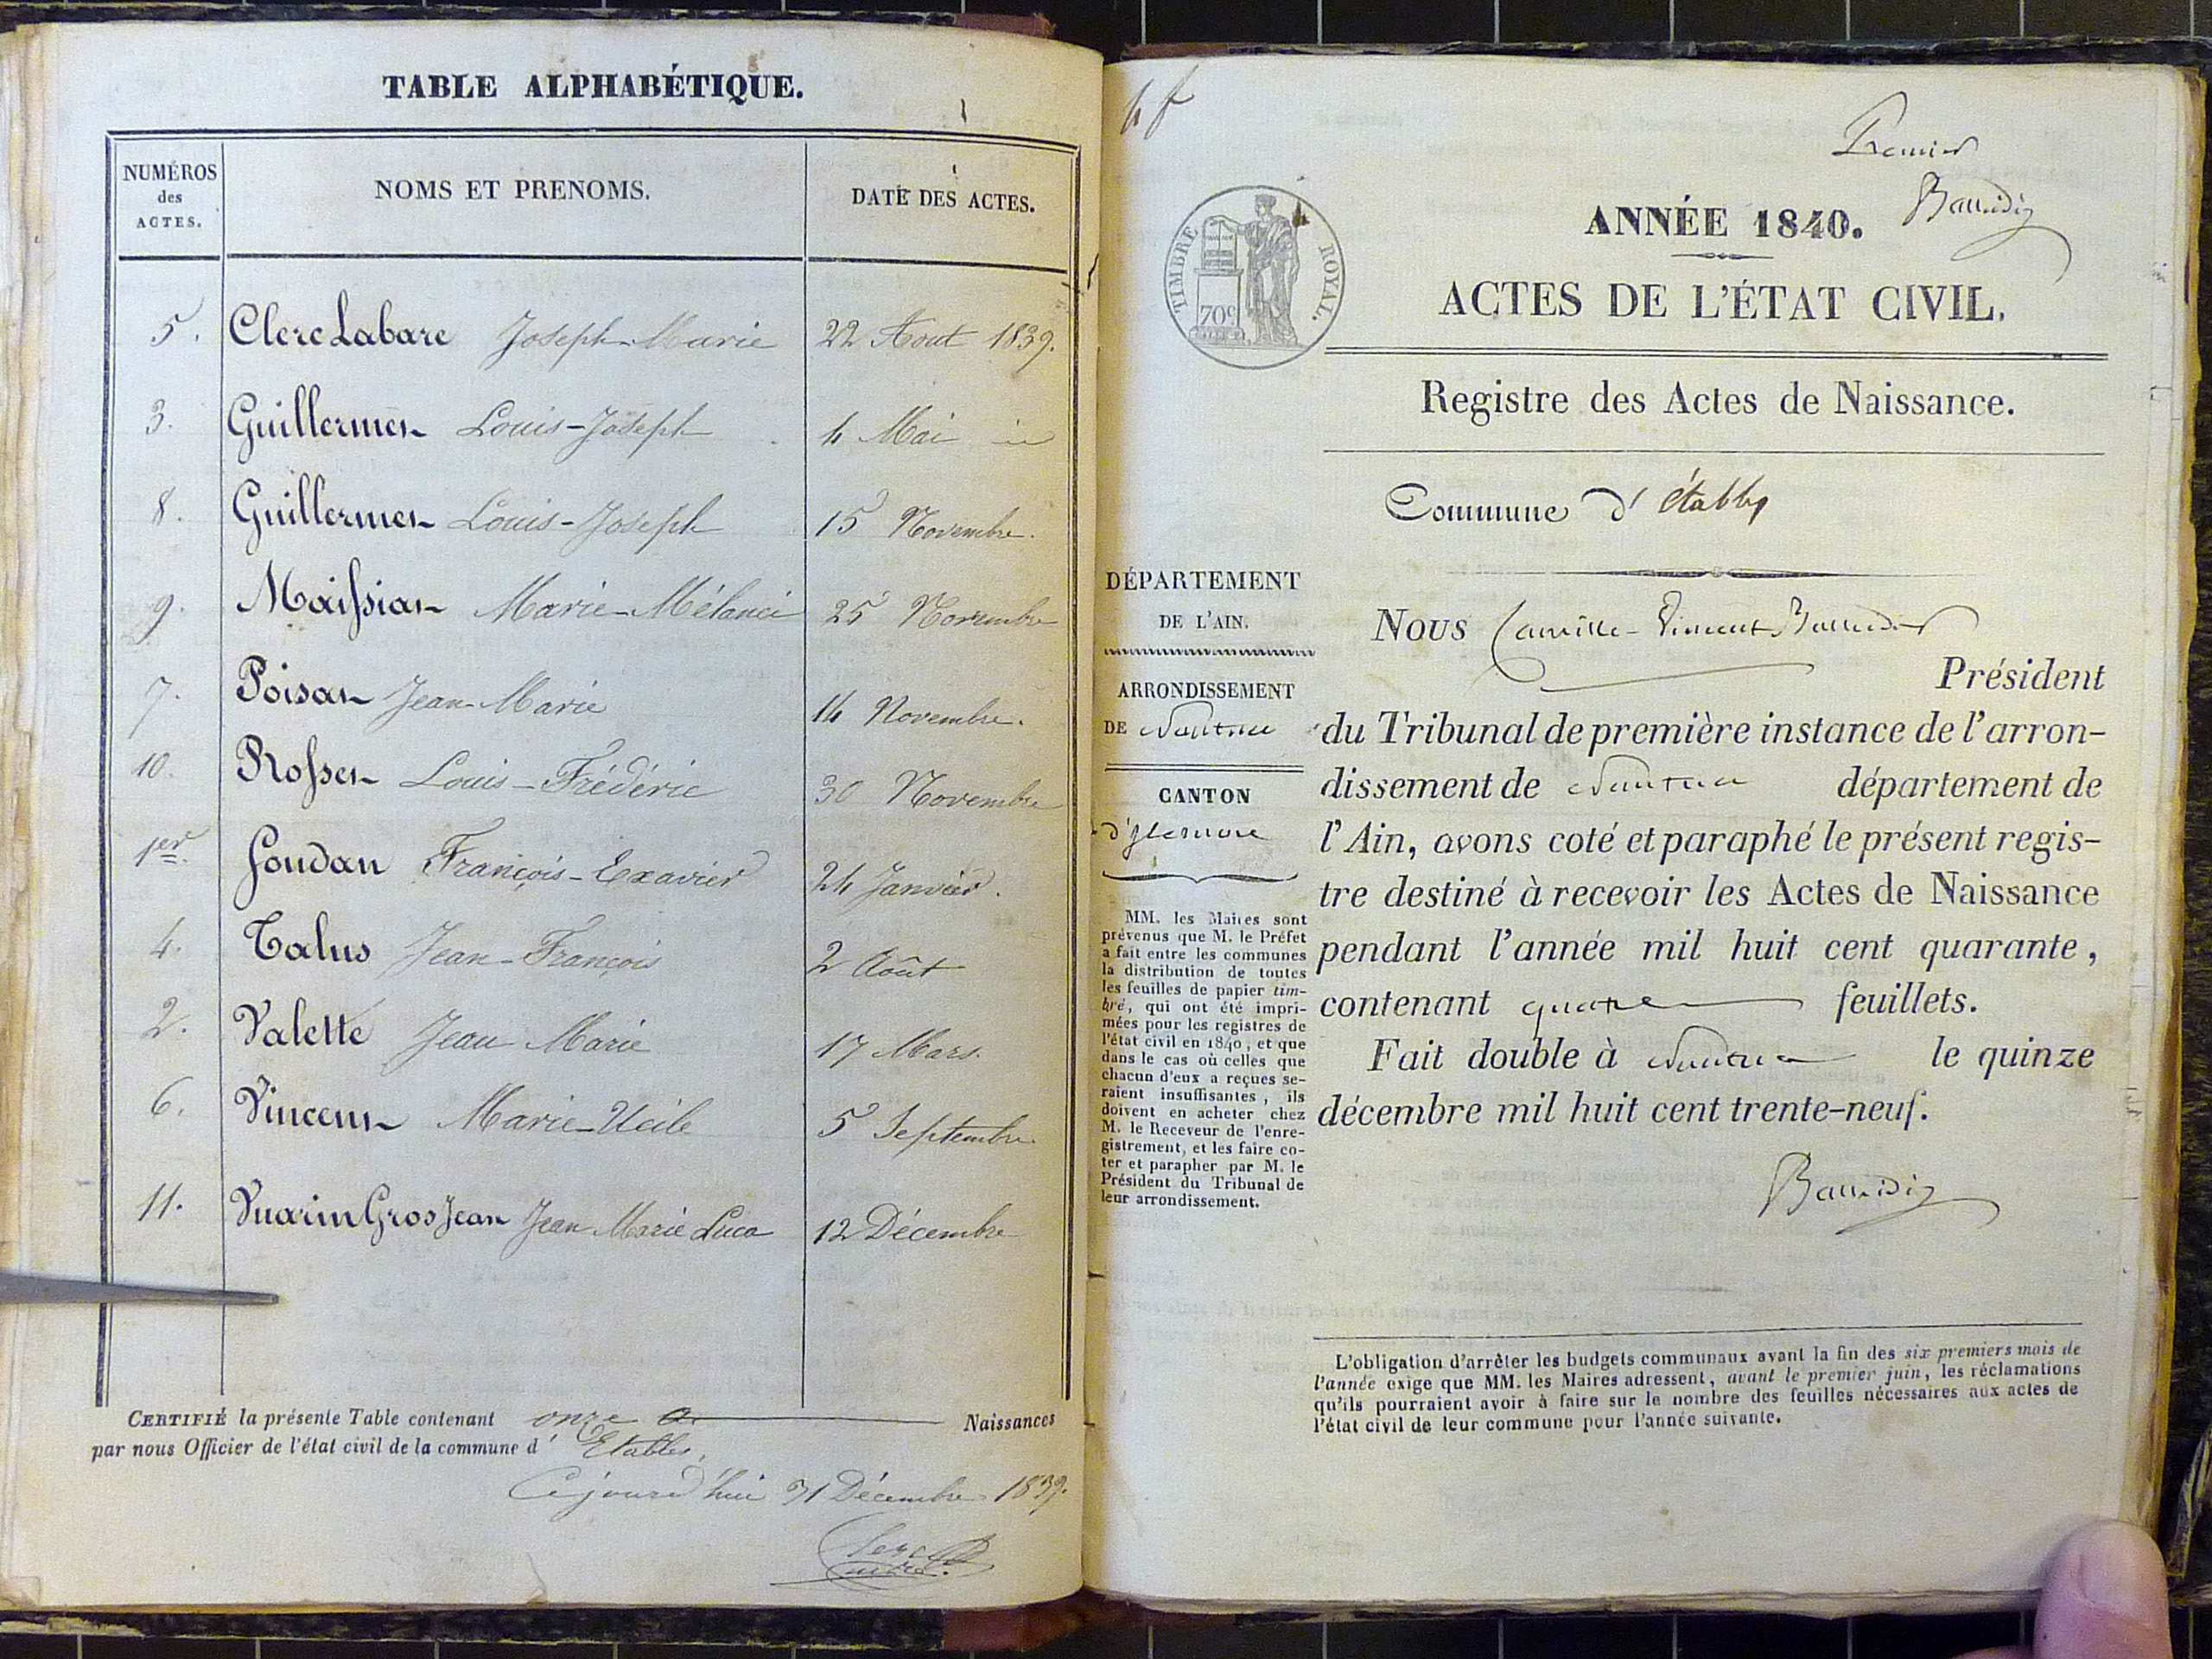 TABLE ALPHABÉTIQUE.
NUMÉROS des ACTES.
NOMS ET PRENOMS.
DATE DES ACTES.
5. Clerc Labare Joseph-Marie 22 Aout 1839.
3. Guillermet Louis-Joseph 4 Mai
8. Guillermet Louis-Joseph 15 Novembre.
9. Marie-Mélanie 25 Novembre
7. Jean-Marie 14 Novembre.
10. Rosset Louis-Frédéric 30 Novembre
1er. François-Exavier 24 Janvier.
4. Jean-François 2 Août
2. Valette Jean Marie 17 Mars.
6. Vincent Marie 5 Septembre.
11. Vuarin GrosJean Jean Marie Luca 12 Décembre
CERTIFIÉ la présente Table contenant onze Naissances
par nous Officier de l'état civil de la commune d' Etables.
Cejourd'hui 31 Décembre 1839.
Premier
ANNÉE 1840.
TIMBRE ROYAL.
70c
ACTES DE L'ÉTAT CIVIL.
Registre des Actes de Naissance.
Commune d' étables
DÉPARTEMENT
DE L'AIN.
ARRONDISSEMENT
DE Nantua
CANTON
MM. les Maires sont
prévenus que M. le Préfet
a fait entre les communes
la distribution de toutes
les feuilles de papier tim-
bré, qui ont été impri-
mées pour les registres de
l'état civil en 1840, et que
dans le cas où celles que
chacun d'eux a reçues se-
raient insuffisantes, ils
doivent en acheter chez
M. le Receveur de l'enre-
gistrement, et les faire co-
ter et parapher par M. le
Président du Tribunal de
leur arrondissement.
Nous Camille-Vincent
Président
du Tribunal de première instance de l'arron-
dissement de Nantua département de
l'Ain, avons coté et paraphé le présent regis-
tre destiné à recevoir les Actes de Naissance
pendant l'année mil huit cent quarante,
contenant quatre feuillets.
Fait double à Nantua le quinze
décembre mil huit cent trente-neuf.
L'obligation d'arrêter les budgets communaux avant la fin des six premiers mois de
l'année exige que MM. les Maires adressent, avant le premier juin, les réclamations
qu'ils pourraient avoir à faire sur le nombre des feuilles nécessaires aux actes de
l'état civil de leur commune pour l'année suivante.